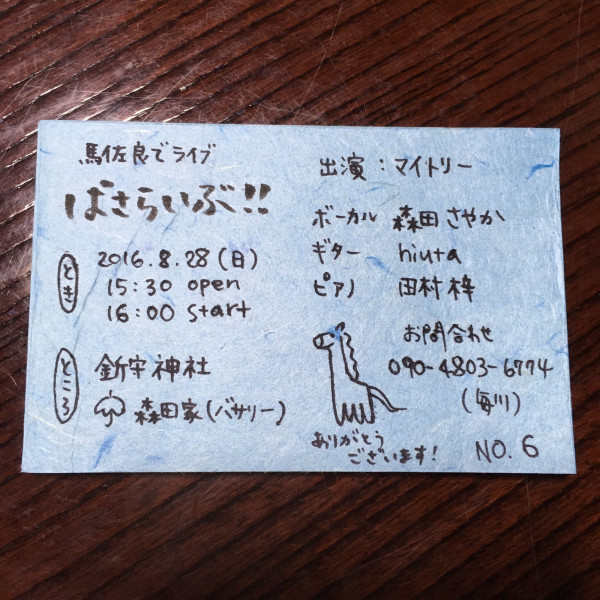 馬佐良でライブ
ばさらいぶ!!
とき
2016.8.28(日)
15:30 open
16:00 start
ところ
新宇神社
森田家(バサリー)
出演:マイトリー
ボーカル 森田さやか
ギター hiuta
ピアノ 田村梓
お問合わせ
090-4803-6774
ありがとう
ございます!
NO.6